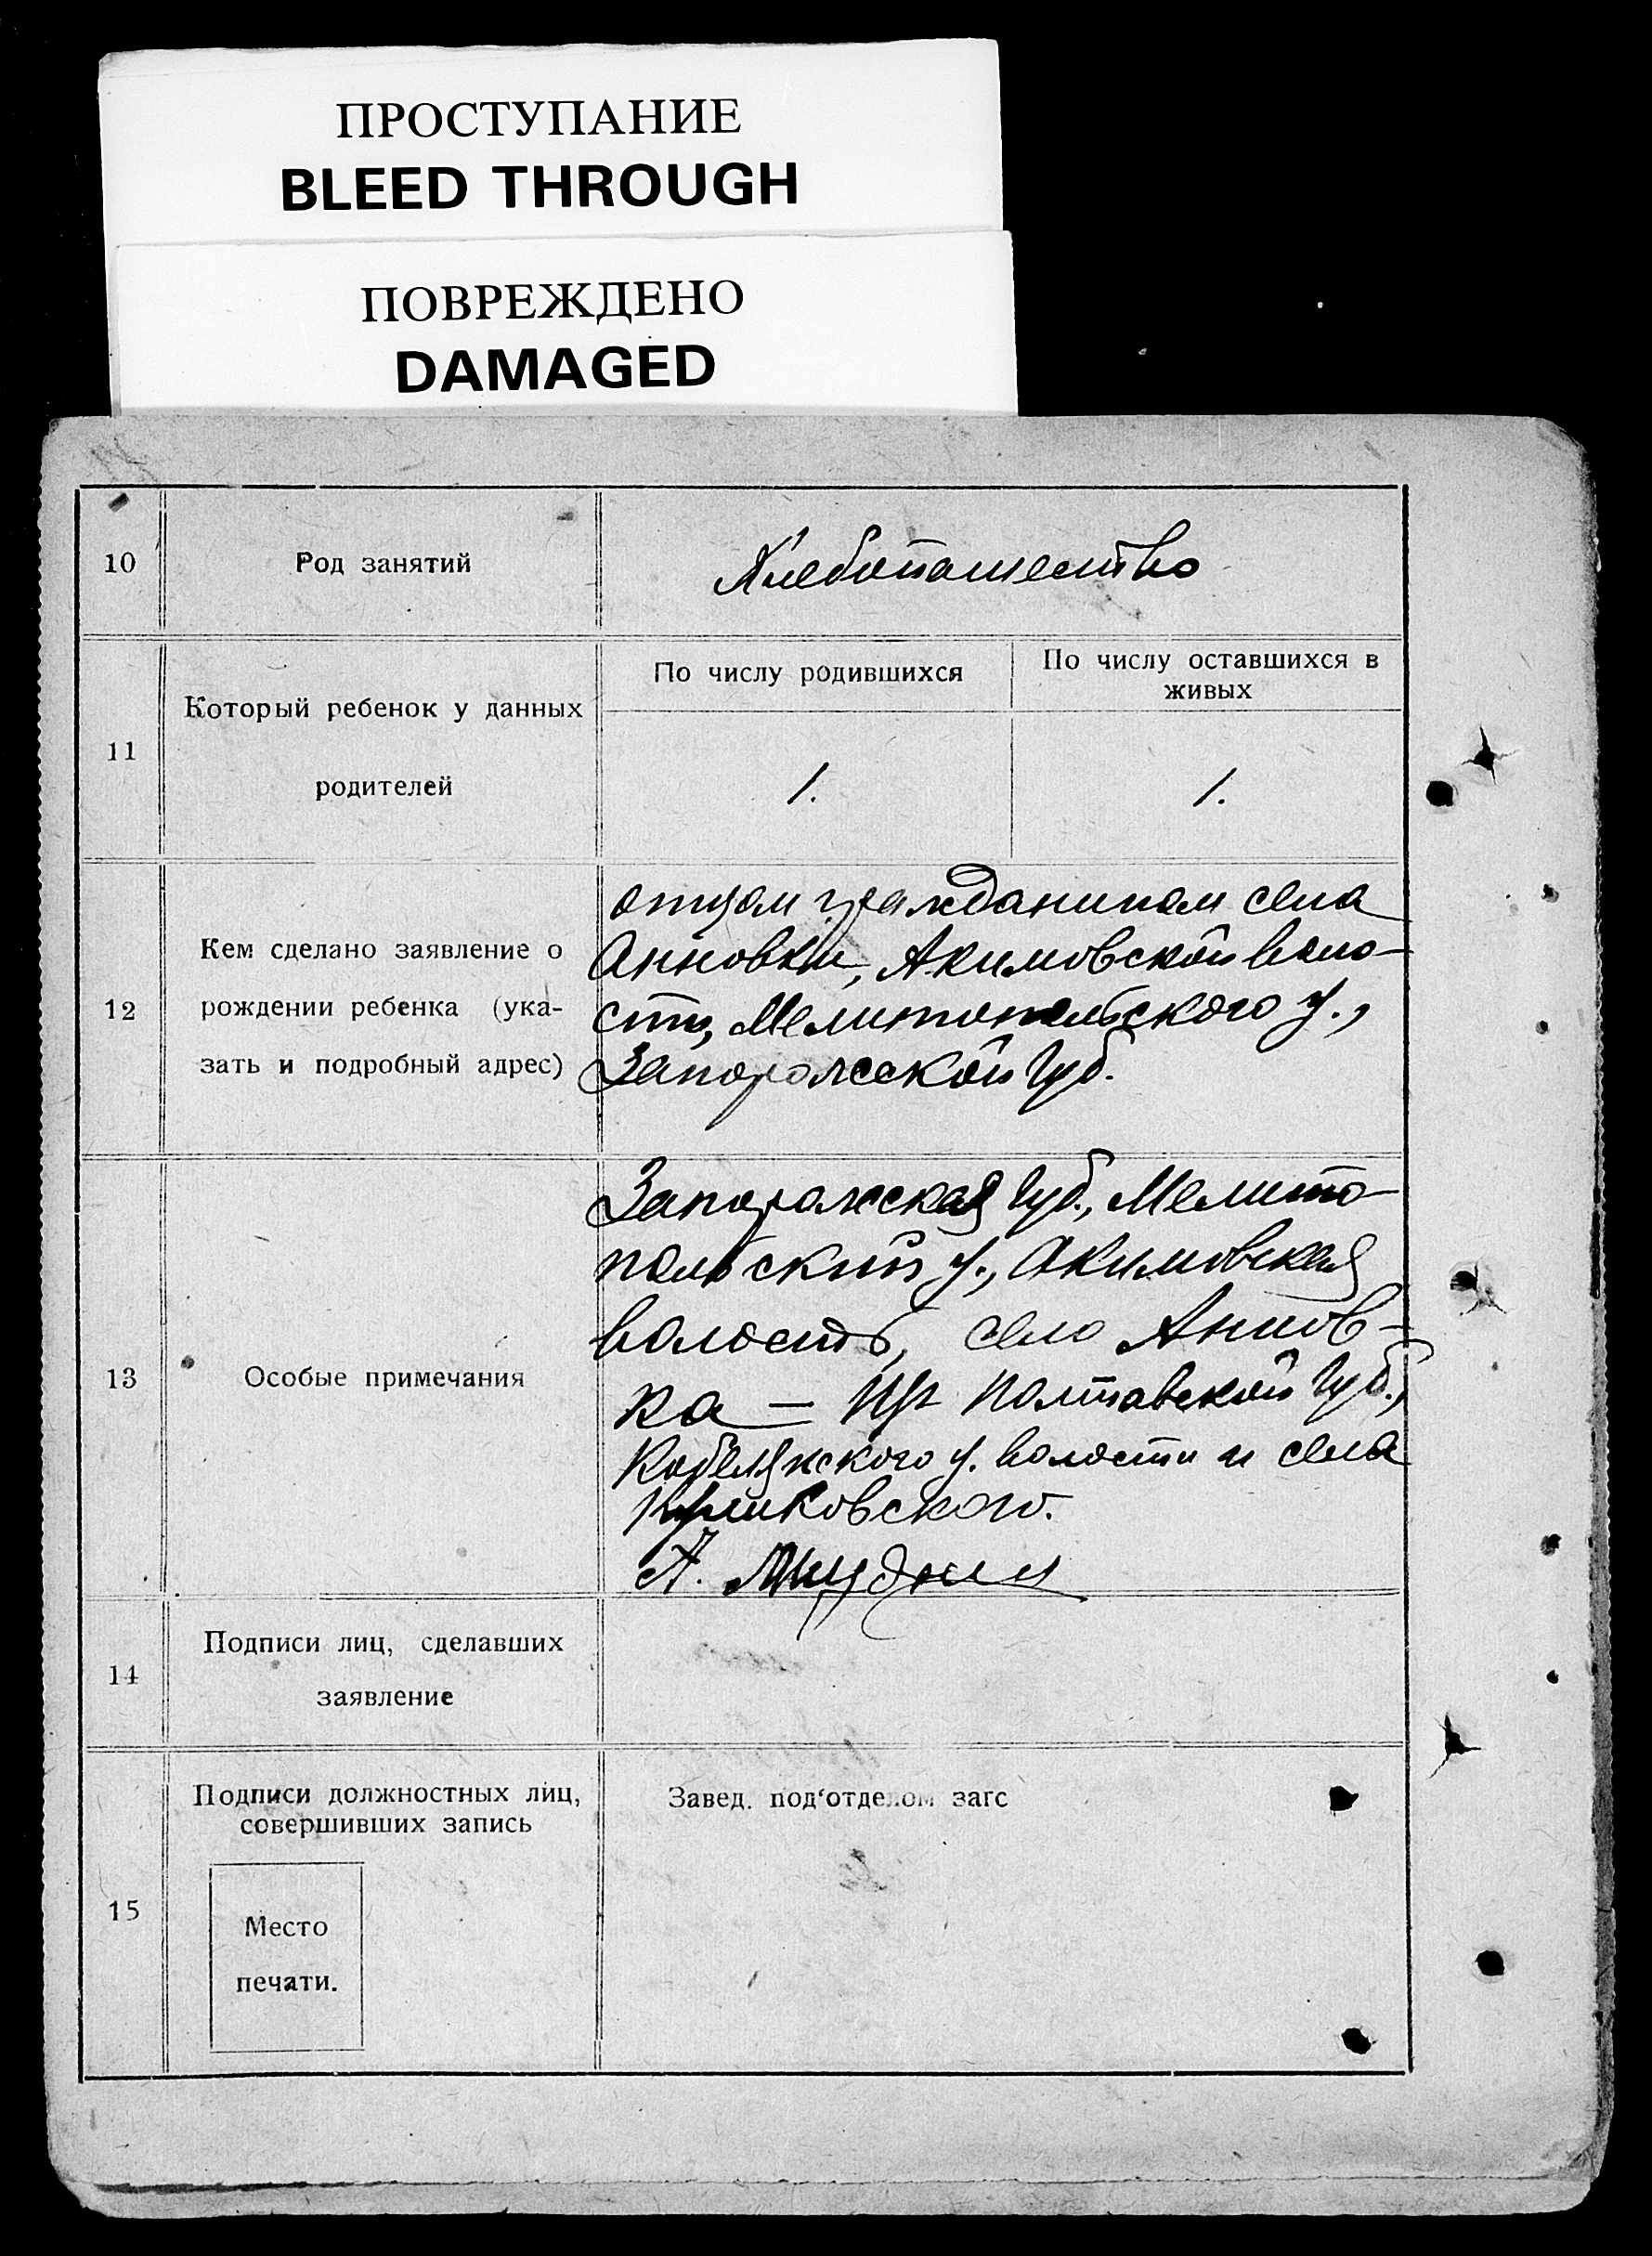 ПРОСТУПАНИЕ
BLEED THROUGH
ПОВРЕЖДЕНО
DAMAGED
10
Род занятий
Хлебопашество
11
Который ребенок у данных
родителей
По числу родившихся
По числу оставшихся в
живых
1.
1.
12
Кем сделано заявление о
рождении ребенка (ука-
зать и подробный адрес)
отцом гражданином села
Анновки, Акимовской воло-
сти, Мелитопольского у.,
Запорожской губ.
13
Особые примечания
Запорожская губ., Мелито-
польский у., Акимовская
волость, село Аннов-
ка — Из Полтавской губ.,
Кобелякского у. волости и села
А.
14
Подписи лиц, сделавших
заявление
15
Подписи должностных лиц,
совершивших запись
Место
печати.
Завед. под‘отделом загс